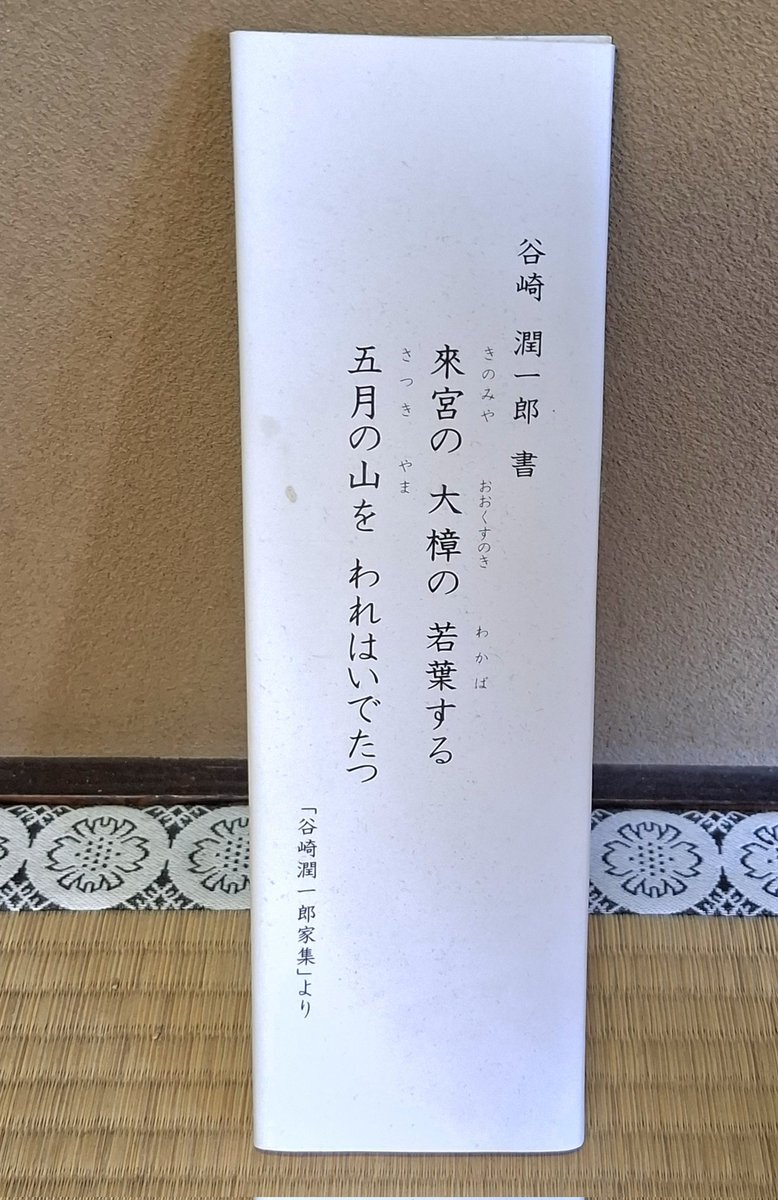 谷崎 潤一郎 書
きのみや おおくすのき わかば
來宮の 大樟の 若葉する
さつき やま
五月の山を われはいでたつ
「谷崎潤一郎家集」より